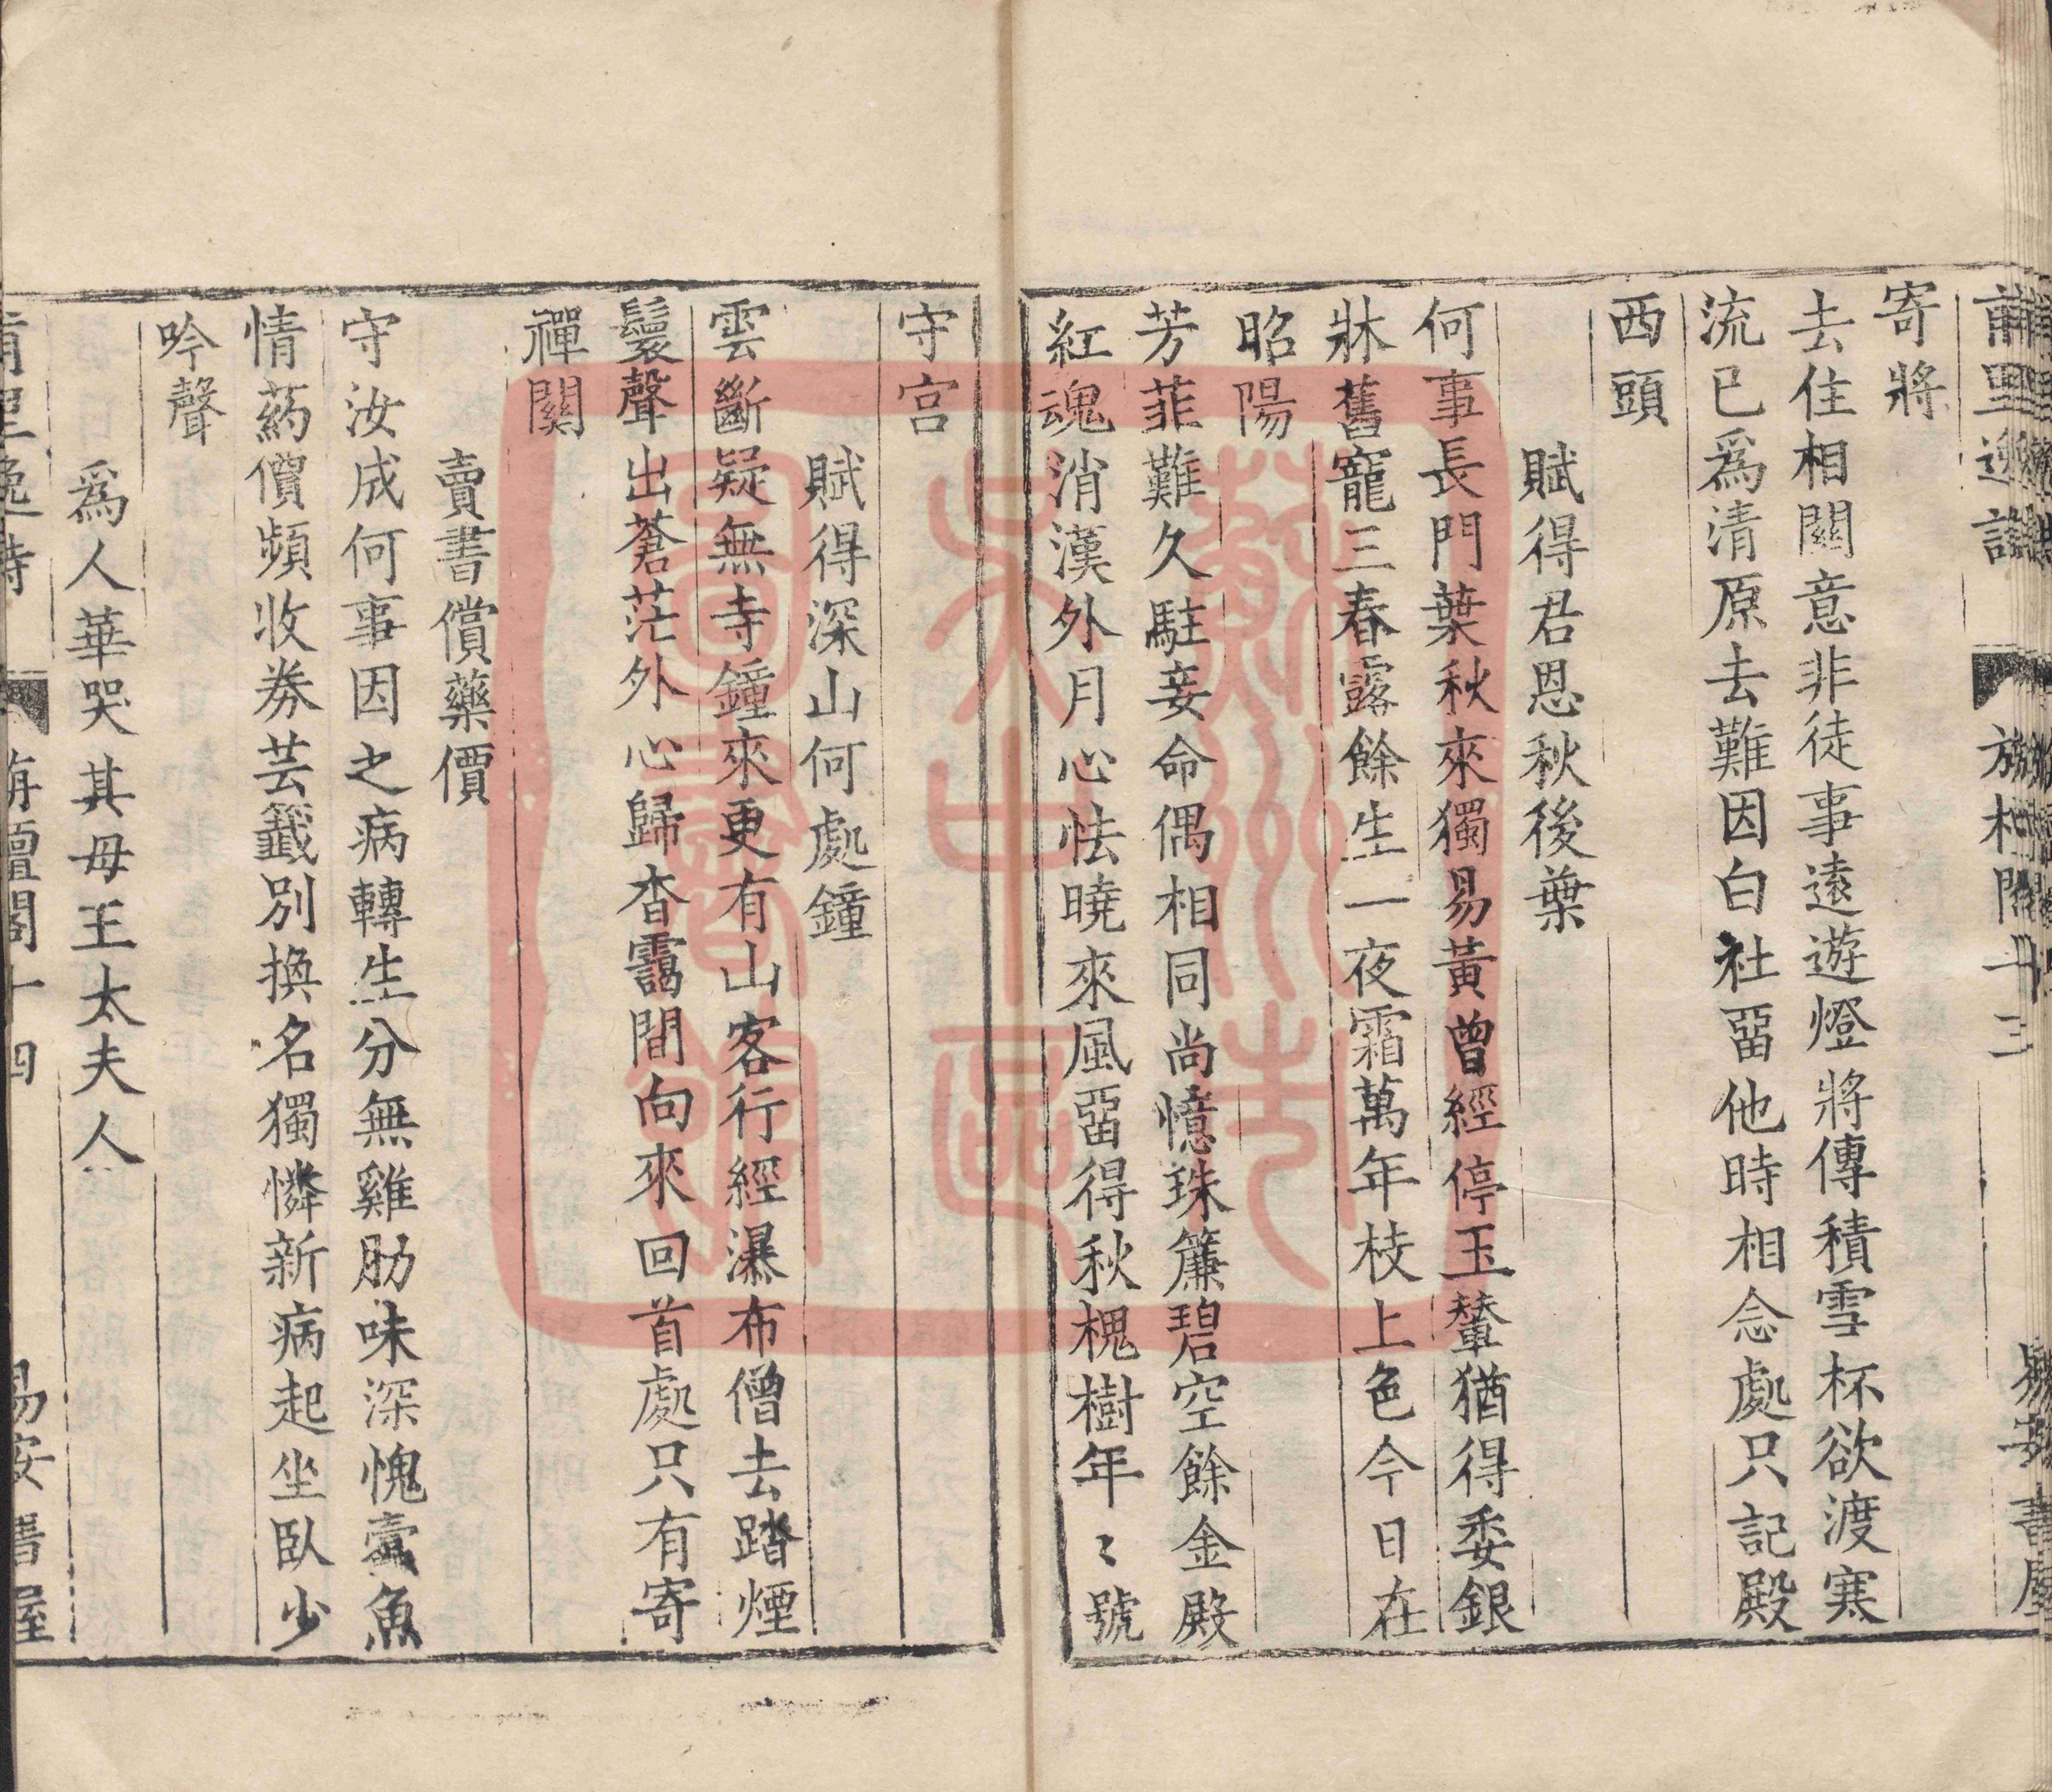 寄將
去住相關意非徒事遠遊燈將傳積雪杯欲渡寒
流已爲清原去難因白社畱他時相念處只記殿
西頭
賦得君恩秋後葉
何事長門葉秋來獨易黃曾經停玉輦猶得委銀
牀舊寵三春露餘生一夜霜萬年枝上色今日在
昭陽
芳菲難久駐妾命偶相同尚憶珠簾碧空餘金殿
紅魂消漢外月心怯曉來風畱得秋槐樹年〻號
守宮
賦得深山何處鐘
雲斷疑無寺鐘來更有山客行經瀑布僧去踏煙
鬟聲出蒼茫外心歸杳靄間向來回首處只有寄
禪關
賣書償藥價
守汝成何事因之病轉生分無雞肋味深愧蠹魚
情葯價頻收券芸籤別換名獨憐新病起坐臥少
吟聲
爲人華哭其母王太夫人
十四
易安書屋